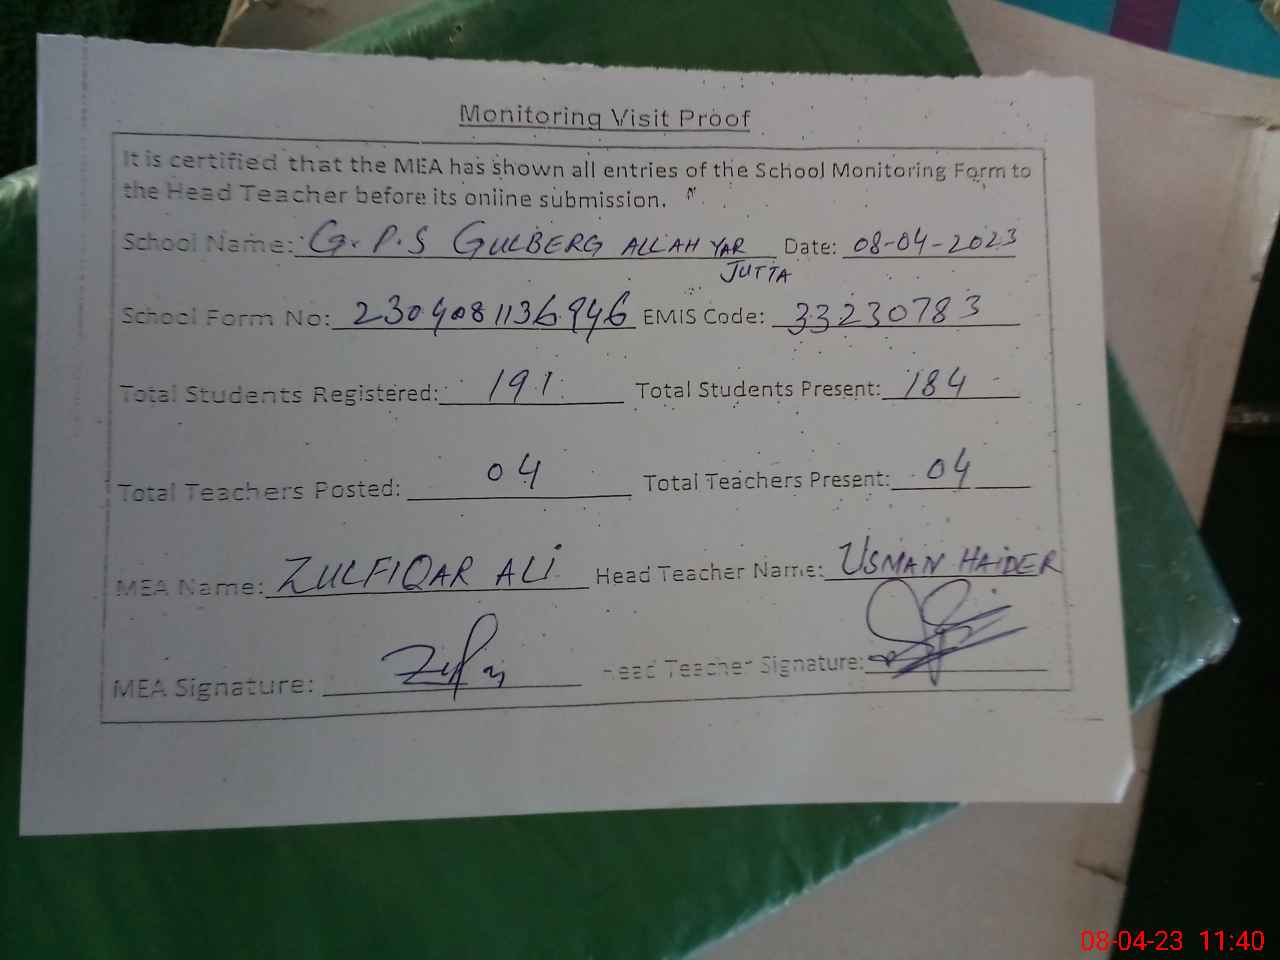 Monitoring Visit Proof
It is certified that the MEA has shown all entries of the School Monitoring Form to
the Head Teacher before its online submission.
School Name: G.P.S GULBERG ALLAH YAR Date: 08-04-2023
JUTTA
School Form No: 2304081136946 EMIS Code: 33230783
Total Students Registered: 191 Total Students Present: 184
Total Teachers Posted: 04 Total Teachers Present: 04
MEA Name: ZULFIQAR ALi Head Teacher Name: USMAN HAiDER
MEA Signature: Head Teacher Signature:
08-04-23 11:40